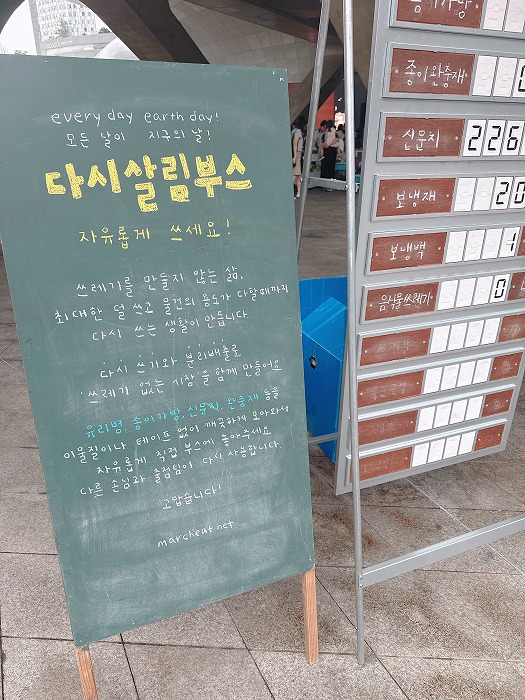 everyday earth day!
모든 날이 지구의 날!
다시살림부스
자유롭게 쓰세요!
쓰레기를 만들지 않는 삶,
최대한 덜 쓰고 물건의 용도가 다할때까지
다시 쓰는 생활이 만듭니다
다시 쓰기와 분리배출로
'쓰레기 없는 시장'을 함께 만들어요
유리병, 종이가방, 신문지, 완충재 등을
이물질이나 테이프 없이 깨끗하게 모아와서
자유롭게 직접 부스에 놓아주세요
다른 손님과 출점팀이 다시 사용합니다
고맙습니다!
marcheat.net
종이완충재 0
신문지 226
보냉재 20
보냉백 1
음식물쓰레기 0